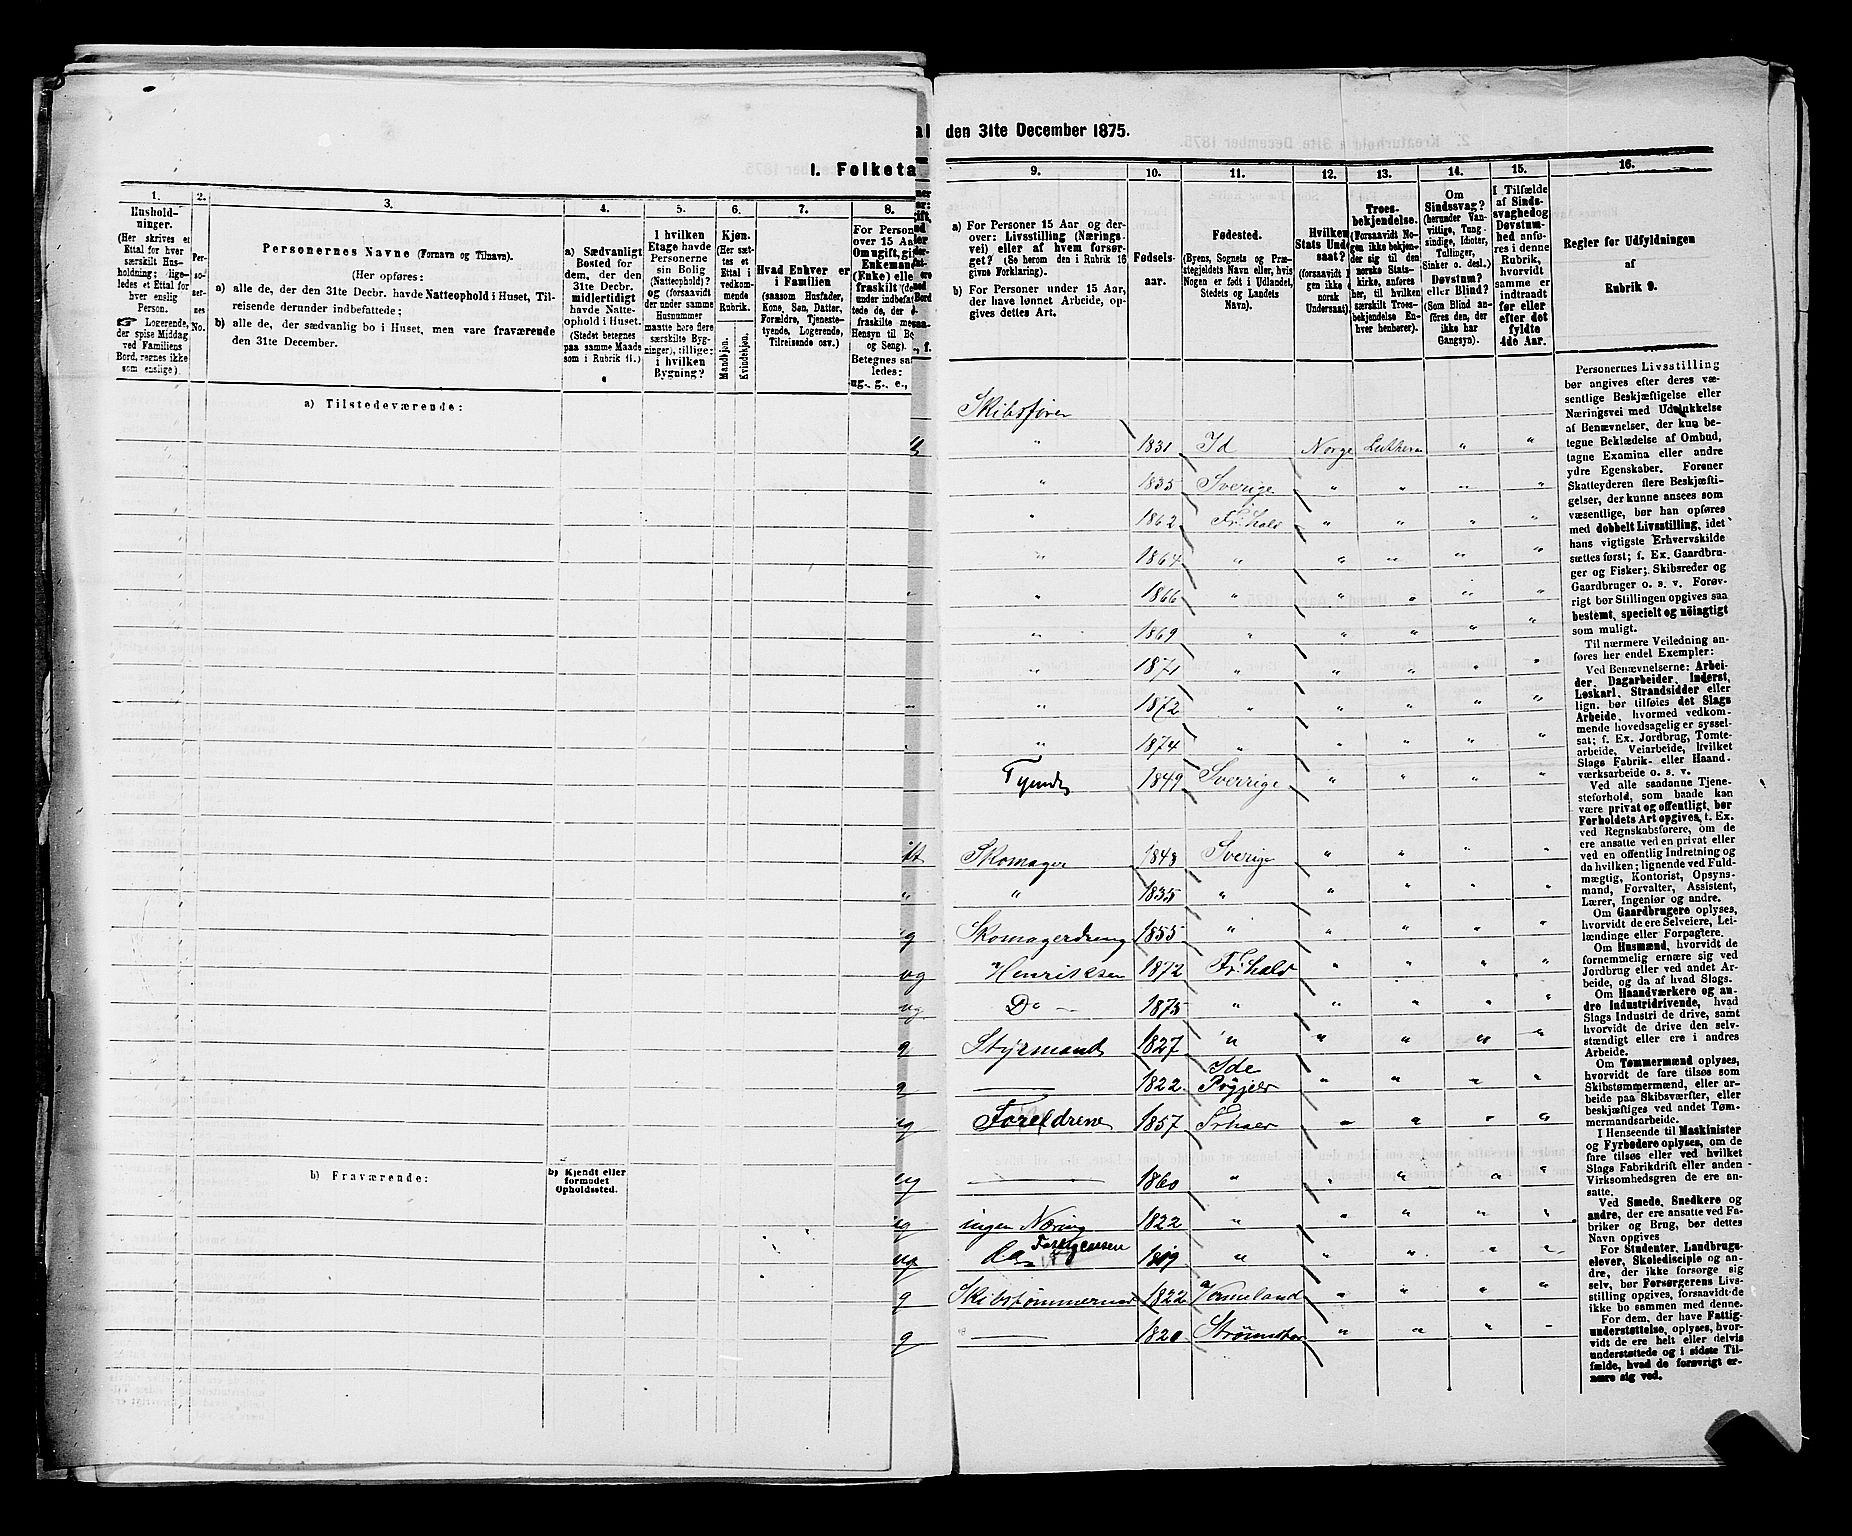 I. Folketa
1.
Husholdninger.
(Her skrives et
Ettal for hver
særskilt Husholdning; ligeledes et Ettal for
hver enslig
Person.
☞ Logerende,
der spise Middag
ved Familiens
Bord, regnes ikke
som enslige).
2.
Personernes No.
3.
Personernes Navne (Fornavn og Tilnavn).
(Her opføres:
a) alle de, der den 31te Decbr. havde Natteophold i Huset, Tilreisende derunder indbefattede;
b) alle de, der sædvanlig bo i Huset, men vare fraværende
den 31te December.
4.
a) Sædvanligt
Bosted for
dem, der den
31te Decbr.
midlertidigt
havde Natteophold i Huset.
(Stedet betegnes
paa samme Maade
som i Rubrik 11.)
5.
I hvilken
Etage havde
Personerne
sin Bolig
(Natteophold)?
og (forsaavidt
der under samme
Husnummer
maatte høre flere
særskilte Bygninger), tillige:
i hvilken
Bygning?
6.
Kjøn.
(Her sættes et
Ettal i
vedkommende
Rubrik.
Mandkjøn.
Kvindekjøn.
7.
Hvad Enhver er
i Familien
(saasom Husfader,
Kone, Søn, Datter,
Forældre, Tjenestetyende, Logerende,
Tilreisende osv.)
8.
For Person
over 15 Aar
Om ugift, gi
Enkemand
(Enke) elle
fraskilt (de
under indbefat
tede de, der
fraskilte me
Hensyn til Bo
og Seng).
Betegnes saaledes:
ug., g., e.,
a) Tilstedeværende:
b) Fraværende:
b) Kjendt eller
formodet
Opholdssted.
al den 31te December 1875.
9.
a) For Personer 15 Aar og derover: Livsstilling (Næringsvei) eller af hvem forsørget? (Se herom den i Rubrik 16
givne Forklaring).
b) For Personer under 15 Aar,
der have lønnet Arbeide, opgives dettes Art.
10.
Fødselsaar.
11.
Fødested.
(Byens, Sognets og Præstegjeldets Navn eller, hvis
Nogen er født i Udlandet,
Stedets og Landets
Navn).
12.
Hvilken
Stats Undersaat?
(forsaavidt
ikke
norsk
Undersaat).
13.
Troesbekjendelse.
(Forsaavidt Nogen ikke bekjender sig til den
norske Statskirke, anføres
her, til hvilken
særskilt Troesbekjendelse Enhver henhører).
14.
Om
Sindssvag?
(herunder Vanvittige, Tungsindige, Idioter,
Tullinger,
Sinker o. desl.)
Døvstum?
eller Blind?
(Som Blind anføres den, der
ikke har
Gangsyn).
15.
I Tilfælde
af Sindssvaghed og
Døvstumhed anføres i denne
Rubrik,
hvorvidt
samme er
indtraadt
før eller
efter det
fyldte
4de Aar.
16.
Regler for Udfyldningen
af
Rubrik 9.
Skibsfører
" 1831 Id Norge Luthersn " "
" 1835 Sverige " " " "
" 1862 Fr:hald " " " "
" 1864 " " " " "
" 1866 " " " " "
" 1869 " " " " "
" 1871 " " " " "
" 1872 " " " " "
" 1874 " " " " "
Tyende 1849 Sverrige " " " "
Skomager 1848 Sverige " " " "
" " 1835 " " " " "
g Skomagerdreng 1855 " " " " "
ug " Henriksen 1872 Fr:hald " " " "
ug Do — 1875 " " " " "
g Styrmand 1827 " " " " "
g — 1822 Ide " " " "
ug Foreldrene 1857 Frhald " " " "
ug — 1860 " " " " "
ug ingen Næring 1822 " " " " "
ug 1819 " " " " "
g Skibstømmermd 1822 Vermeland " " " "
g — 1820 Strømstad " " " –
Personernes Livsstilling
bør angives efter deres væsentlige Beskjæftigelse eller
Næringsvei med Udelukkelse
af Benævnelser, der kun betegne Beklædelse af Ombud,
tagne Examina eller andre
ydre Egenskaber. Forener
Skatteyderen flere Beskjæftigelser, der kunne ansees som
væsentlige, bør han opføres
med dobbelt Livsstilling, idet
hans vigtigste Erhvervskilde
sættes først; f. Ex. Gaardbruger og Fisker; Skibsreder og
Gaardbruger o. s. v. Forøvrigt bør Stillingen opgives saa
bestemt, specielt og nöiagtigt
som muligt.
Til nærmere Veiledning anføres her endel Exempler:
Ved Benævnelserne: Arbeider, Dagarbeider, Inderst,
Løskarl, Strandsidder eller
lign. bør tilføies det Slags
Arbeide, hvormed vedkommende hovedsagelig er sysselsat; f. Ex. Jordbrug, Tomtearbeide, Veiarbeide, hvilket
Slags Fabrik- eller Haandværksarbeide o. s. v.
Ved alle saadanne Tjenesteforhold, som baade kan
være privat og offentligt, bør
Forholdets Art opgives, t. Ex.
ved Regnskabsførere, om de
ere ansatte ved en privat eller
ved en offentlig Indretning og
da hvilken; lignende ved Fuldmægtig, Kontorist, Opsynsmand, Forvalter, Assistent,
Lærer, Ingeniør og andre.
Om Gaardbrugere oplyses,
hvorvidt de ere Selveiere, Leilændinge eller Forpagtere.
Om Husmænd, hvorvidt de
fornemmelig ernære sig ved
Jordbrug eller ved andet Arbeide, og da af hvad Slags.
Om Haandværkere og andre Industridrivende, hvad
Slags Industri de drive, samt
hvorvidt de drive den selvstændigt eller ere i andres
Arbeide.
Om Tømmermænd oplyses,
hvorvidt de fare tilsøs som
Skibstømmermænd, eller arbeide paa Skibsværfter, eller
beskjæftiges ved andet Tømmermandsarbeide.
I Henseende til Maskinister
og Fyrbødere oplyses, om de
fare tilsøs eller ved hvilket
Slags Fabrikdrift eller anden
Virksomhedsgren de ere ansatte.
Ved Smede, Snedkere og
andre, der ere ansatte ved Fabriker og Brug, bør dettes
Navn opgives
For Studenter, Landbrugselever, Skoledisciple og andre, der ikke forsørge sig
selv, bør Forsørgerens Livsstilling opgives, forsaavidt de
ikke bo sammen med denne.
For dem, der have Fattigunderstøttelse, oplyses, hvorvidt de ere helt eller delvis
understøttede og i sidste Tilfælde, hvad de forøvrigt ernære sig ved.